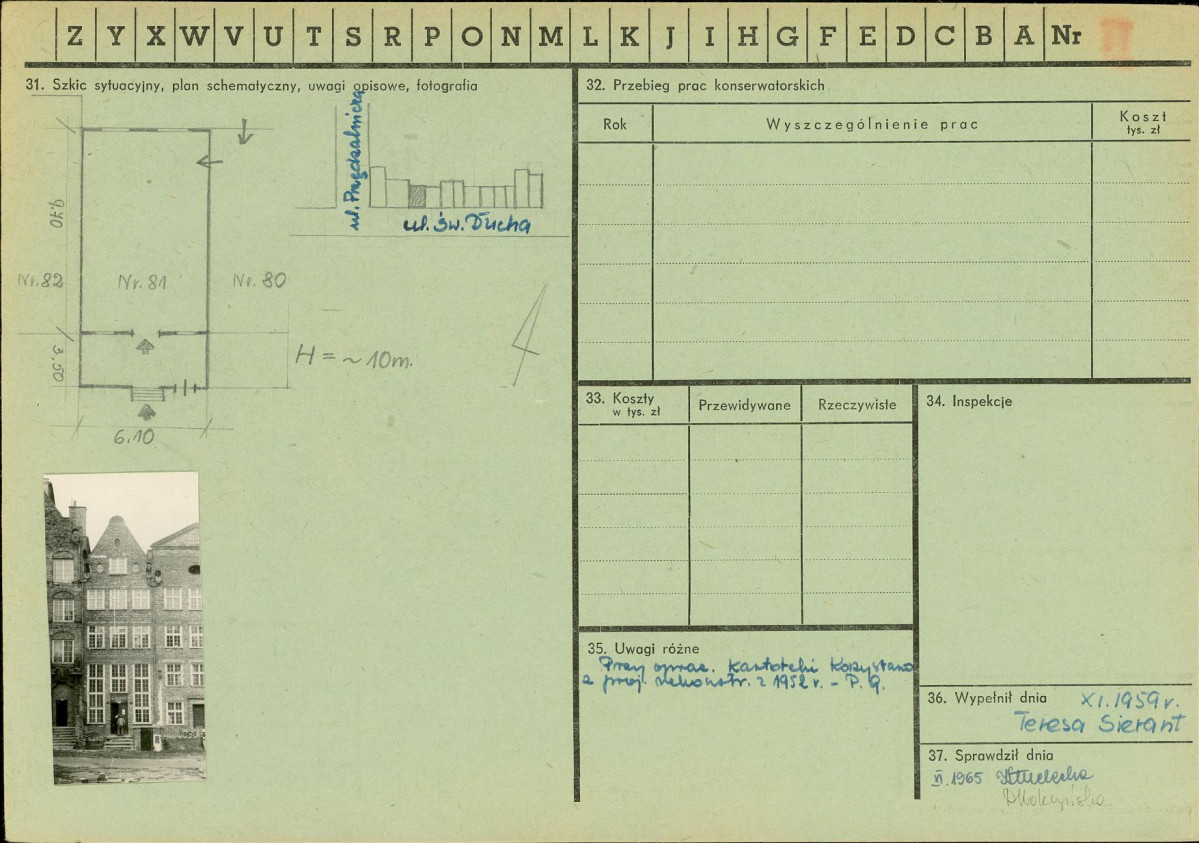 Z Y X W V U T S R P O N M L K J I H G F E D C B A Nr
31. Szkic sytuacyjny, plan schematyczny, uwagi opisowe, fotografia
ul. Przędzalnicza
ul. Św. Ducha
9.70
Nr. 82
Nr. 81
Nr. 80
3.50
H = ~10m.
6.10
32. Przebieg prac konserwatorskich
Rok
Wyszczególnienie prac
Koszt
tys. zł
33. Koszty
w tys. zł
Przewidywane
Rzeczywiste
34. Inspekcje
35. Uwagi różne
Przy oprac. kartoteki korzystano
z proj. rekonstr. z 1952 r. - P.G.
36. Wypełnił dnia XI.1959 r.
Teresa Sierant
37. Sprawdził dnia
VI.1965